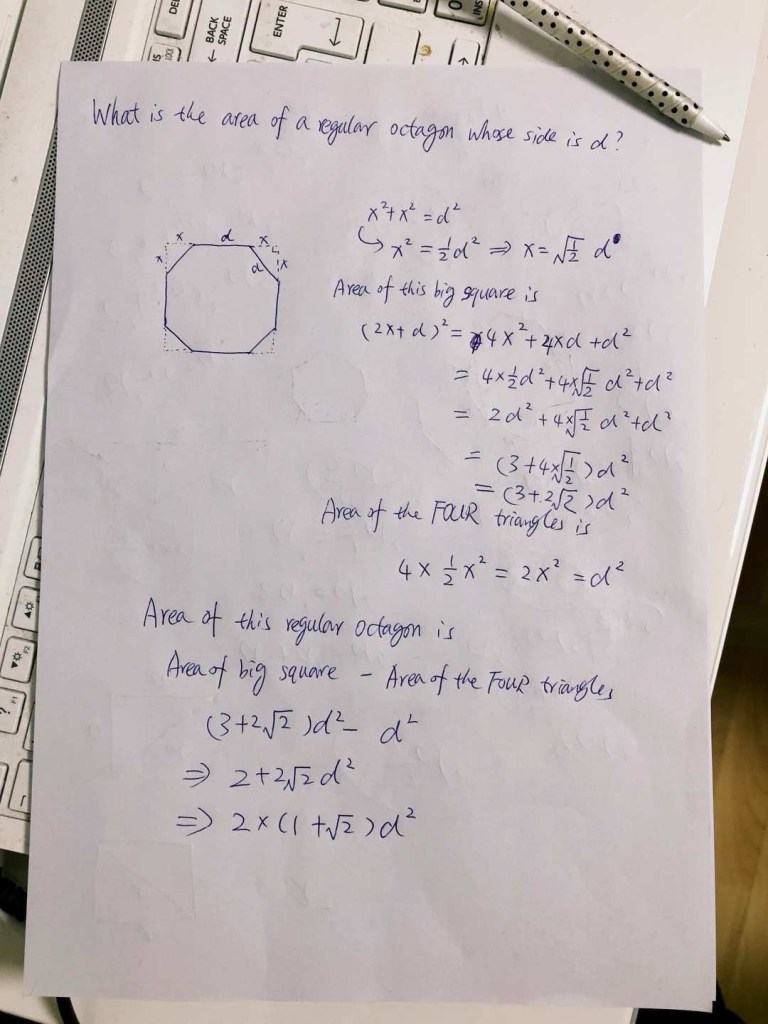 BACK
SPACE
ENTER
INS
What is the area of a regular octagon whose side is d?
x d x
x d x
x²+x² = d²
x² = ½d² ⇒ x = √½ d
Area of this big square is
(2x+d)² = 4x²+4xd+d²
= 4×½d²+4×√½ d²+d²
= 2d²+4×√½ d²+d²
= (3+4×√½)d²
= (3+2√2)d²
Area of the FOUR triangles is
4 × ½x² = 2x² = d²
Area of this regular octagon is
Area of big square - Area of the FOUR triangles
(3+2√2)d² - d²
⇒ 2+2√2d²
⇒ 2×(1+√2)d²
F2
F1
?